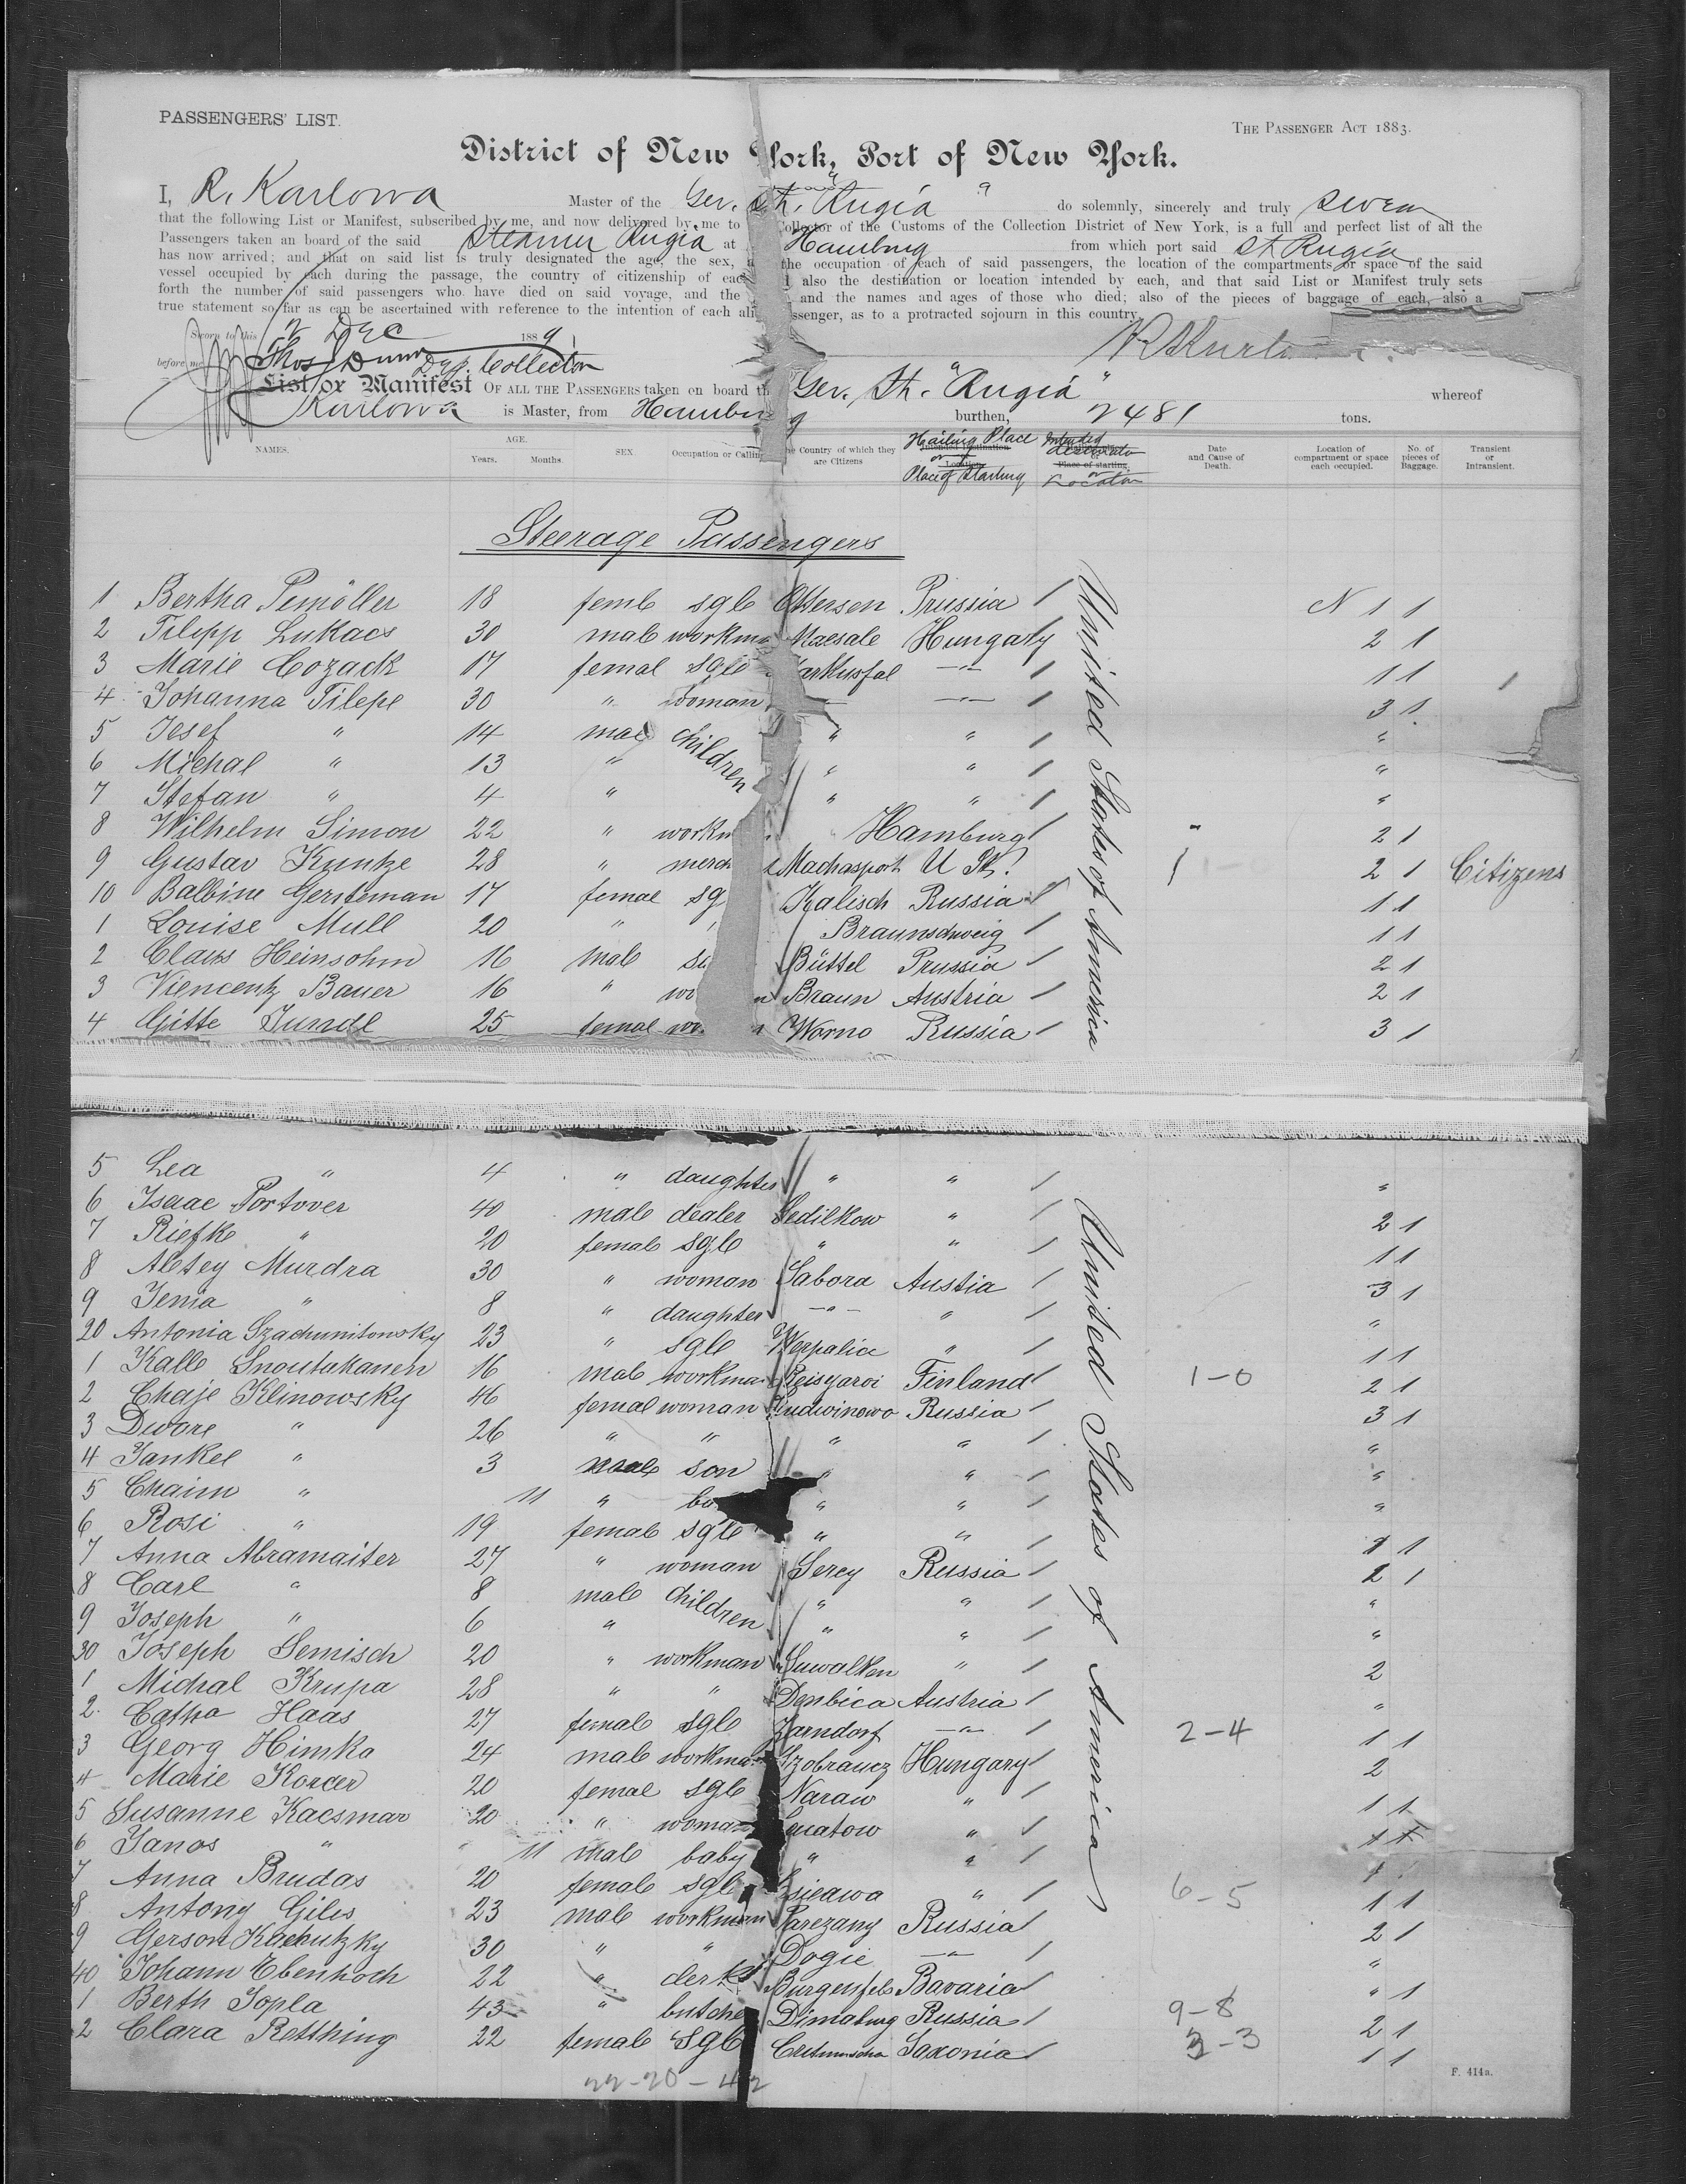 PASSENGERS' LIST.
THE PASSENGER ACT 1883.
District of New York, Port of New York.
I, R. Karlowa Master of the Ger. St. "Rugia" do solemnly, sincerely and truly swear
that the following List or Manifest, subscribed by me, and now delivered by me to Collector of the Customs of the Collection District of New York, is a full and perfect list of all the
Passengers taken an board of the said Steamer Rugia at Hamburg from which port said St Rugia
has now arrived; and that on said list is truly designated the age, the sex, the occupation of each of said passengers, the location of the compartments or space of the said
vessel occupied by each during the passage, the country of citizenship of each also the destination or location intended by each, and that said List or Manifest truly sets
forth the number of said passengers who have died on said voyage, and the and the names and ages of those who died; also of the pieces of baggage of each, also a
true statement so far as can be ascertained with reference to the intention of each ali ssenger, as to a protracted sojourn in this country.
Sworn to this Dec 1889
before me Thos J Dunn Dep. Collector
List or Manifest OF ALL THE PASSENGERS taken on board th Ger. St. "Rugia" whereof
Karlowa is Master, from Hamburg burthen, 2481 tons.
NAMES. AGE. Years. Months. SEX. Occupation or Calling The Country of which they are Citizens Hailing Place or Place of Starting Intended destination or Location Date and Cause of Death. Location of compartment or space each occupied. No. of pieces of Baggage. Transient or Intransient.
Steerage Passengers
United States of America
1 Bertha Pemöller 18 feml sgle Ottersen Prussia / N 1 1
2 Filepp Lukacs 30 male workma Macsale Hungary 2 1
3 Marie Cozack 17 femal sgle arkusfal —"— / 1 1
4 Johanna Filepe 30 " woman — —"— / 3 1
5 Josef " 14 male children " " / "
6 Michal " 13 " " " / "
7 Stefan " 4 " " " / "
8 Wilhelm Simon 22 " workm Hamburg / 2 1
9 Gustav Kuntze 28 " merch t Machasport U St. 2 1 Citizens
10 Balbine Gersteman 17 femal sg Kalisch Russia / 1 1
1 Louise Mull 20 " Braunschweig / 1 1
2 Claus Heinsohn 16 male Büttel Prussia / 2 1
3 Viencentz Bauer 16 " wo n Braun Austria / 2 1
4 Gitte Jundl 25 femal wo n Worno Russia / 3 1
5 Lea " 4 " daughter " " / "
6 Isaac Portover 40 male dealer Sedilkow " / 2 1
7 Riefke " 20 female sgle " " / 1 1
8 Alesey Murdra 30 " woman Sabora Austia / 3 1
9 Jenia " 8 " daughter —"— " / "
20 Antonia Szachunitowsky 23 " sgle Werpalia " / 1 1
1 Kalle Snoutukanen 16 male workma Reisyaroi Finland / 1-0 2 1
2 Chaje Klinowsky 46 femal woman Ludwinowo Russia / 3 1
3 Dwore " 26 " " " " / "
4 Jankel " 3 male son " " / "
5 Chaim " 11 " ba " " / "
6 Rosi " 19 female sgle " " / 1 1
7 Anna Abramaiter 27 " woman Serey Russia / 2 1
8 Carl " 8 male children " " / "
9 Joseph " 6 " " " / "
30 Joseph Semisch 20 " workman Suwalken " / 2
1 Michal Krupa 28 " " Denbica Austria / "
2 Catha Haas 27 female sgle Zarndorf —"— / 2-4 1 1
3 Georg Himka 24 male workma Szobrancz Hungary / 2
4 Marie Korcer 20 femal sgle Naraw " / 1 1
5 Susanne Kacsmar 20 " woman uatow " /
6 Janos " 11 male baby " " /
7 Anna Brudas 20 female sgle sieawa " / 6-5 1 1
8 Antony Giles 23 male workman Parezany Russia / 2 1
9 Gerson Kachutzky 30 " " Dogie —"— / "
40 Johann Ebenhoch 22 " clerk Burgenfels Bavaria / " 1
1 Berth Sopla 43 " butche Dimaburg Russia / 9-8 2 1
2 Clara Retthing 22 female sgle Saxonia / 3-3 1 1
United States of America
22-20-42
F. 414a.